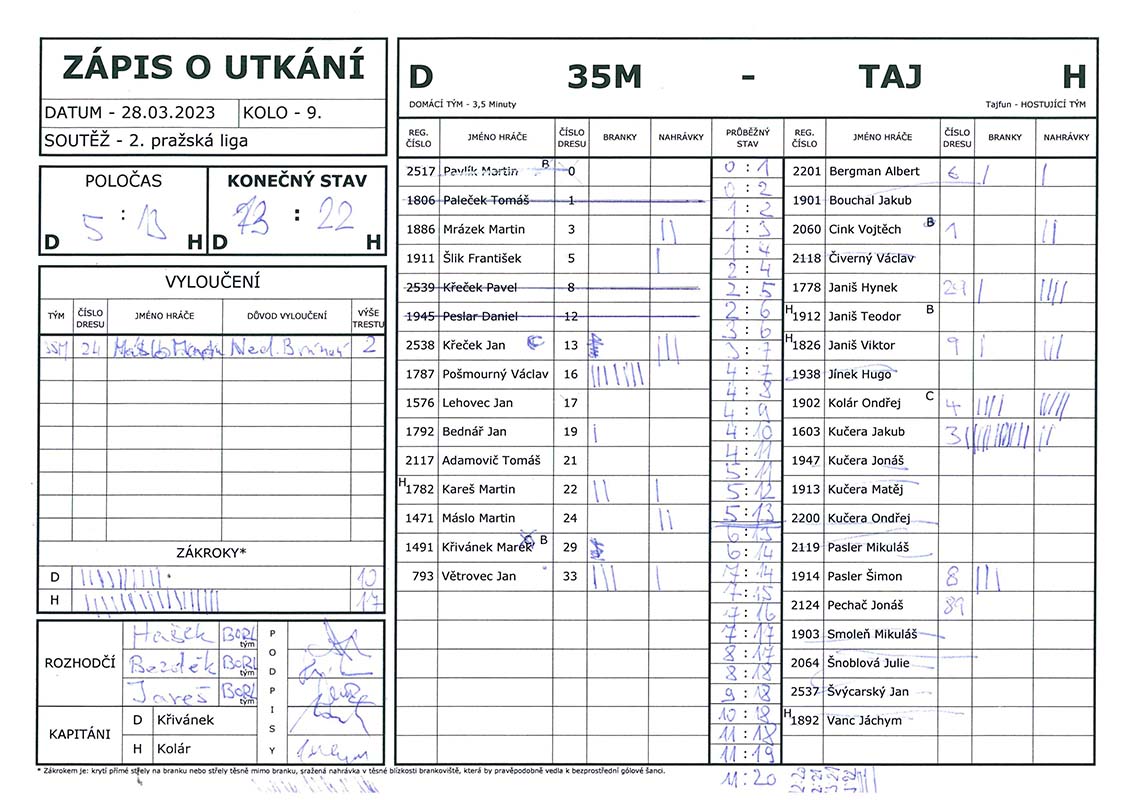 ZÁPIS O UTKÁNÍ
DATUM - 28.03.2023 KOLO - 9.
SOUTĚŽ - 2. pražská liga
POLOČAS KONEČNÝ STAV
5 : 13 13 : 22
D H D H
VYLOUČENÍ
TÝM ČÍSLO DRESU JMÉNO HRÁČE DŮVOD VYLOUČENÍ VÝŠE TRESTU
35M 24 Máslo Martin 2
ZÁKROKY*
D 10
H 17
ROZHODČÍ
Hašek BORL tým
Bezděk BORL tým
Jareš BORL tým
PODPISY
KAPITÁNI
D Křivánek
H Kolár
D 35M - TAJ H
DOMÁCÍ TÝM - 3,5 Minuty Tajfun - HOSTUJÍCÍ TÝM
REG. ČÍSLO JMÉNO HRÁČE ČÍSLO DRESU BRANKY NAHRÁVKY
2517 Pavlík Martin B 0
1806 Paleček Tomáš 1
1886 Mrázek Martin 3
1911 Šlik František 5
2539 Křeček Pavel 8
1945 Peslar Daniel 12
2538 Křeček Jan C 13
1787 Pošmourný Václav 16
1576 Lehovec Jan 17
1792 Bednář Jan 19
2117 Adamovič Tomáš 21
H 1782 Kareš Martin 22
1471 Máslo Martin 24
1491 Křivánek Marek C B 29
793 Větrovec Jan 33
PRŮBĚŽNÝ STAV
0 : 1
0 : 2
1 : 2
1 : 3
1 : 4
2 : 4
2 : 5
2 : 6
3 : 6
3 : 7
4 : 7
4 : 8
4 : 9
4 : 10
4 : 11
5 : 11
5 : 12
5 : 13
6 : 13
6 : 14
7 : 14
7 : 15
7 : 16
7 : 17
8 : 17
8 : 18
9 : 18
10 : 18
11 : 18
11 : 19
11 : 20
REG. ČÍSLO JMÉNO HRÁČE ČÍSLO DRESU BRANKY NAHRÁVKY
2201 Bergman Albert 6
1901 Bouchal Jakub
2060 Cink Vojtěch B 1
2118 Čiverný Václav
1778 Janiš Hynek 29
H 1912 Janiš Teodor B
H 1826 Janiš Viktor 9
1938 Jínek Hugo
1902 Kolár Ondřej C 4
1603 Kučera Jakub 3
1947 Kučera Jonáš
1913 Kučera Matěj
2200 Kučera Ondřej
2119 Pasler Mikuláš
1914 Pasler Šimon 8
2124 Pechač Jonáš 89
1903 Smoleň Mikuláš
2064 Šnoblová Julie
2537 Švýcarský Jan
H 1892 Vanc Jáchym
* Zákrokem je: krytí přímé střely na branku nebo střely těsně mimo branku, sražená nahrávka v těsné blízkosti brankoviště, která by pravěpodobně vedla k bezprostřední gólové šanci.